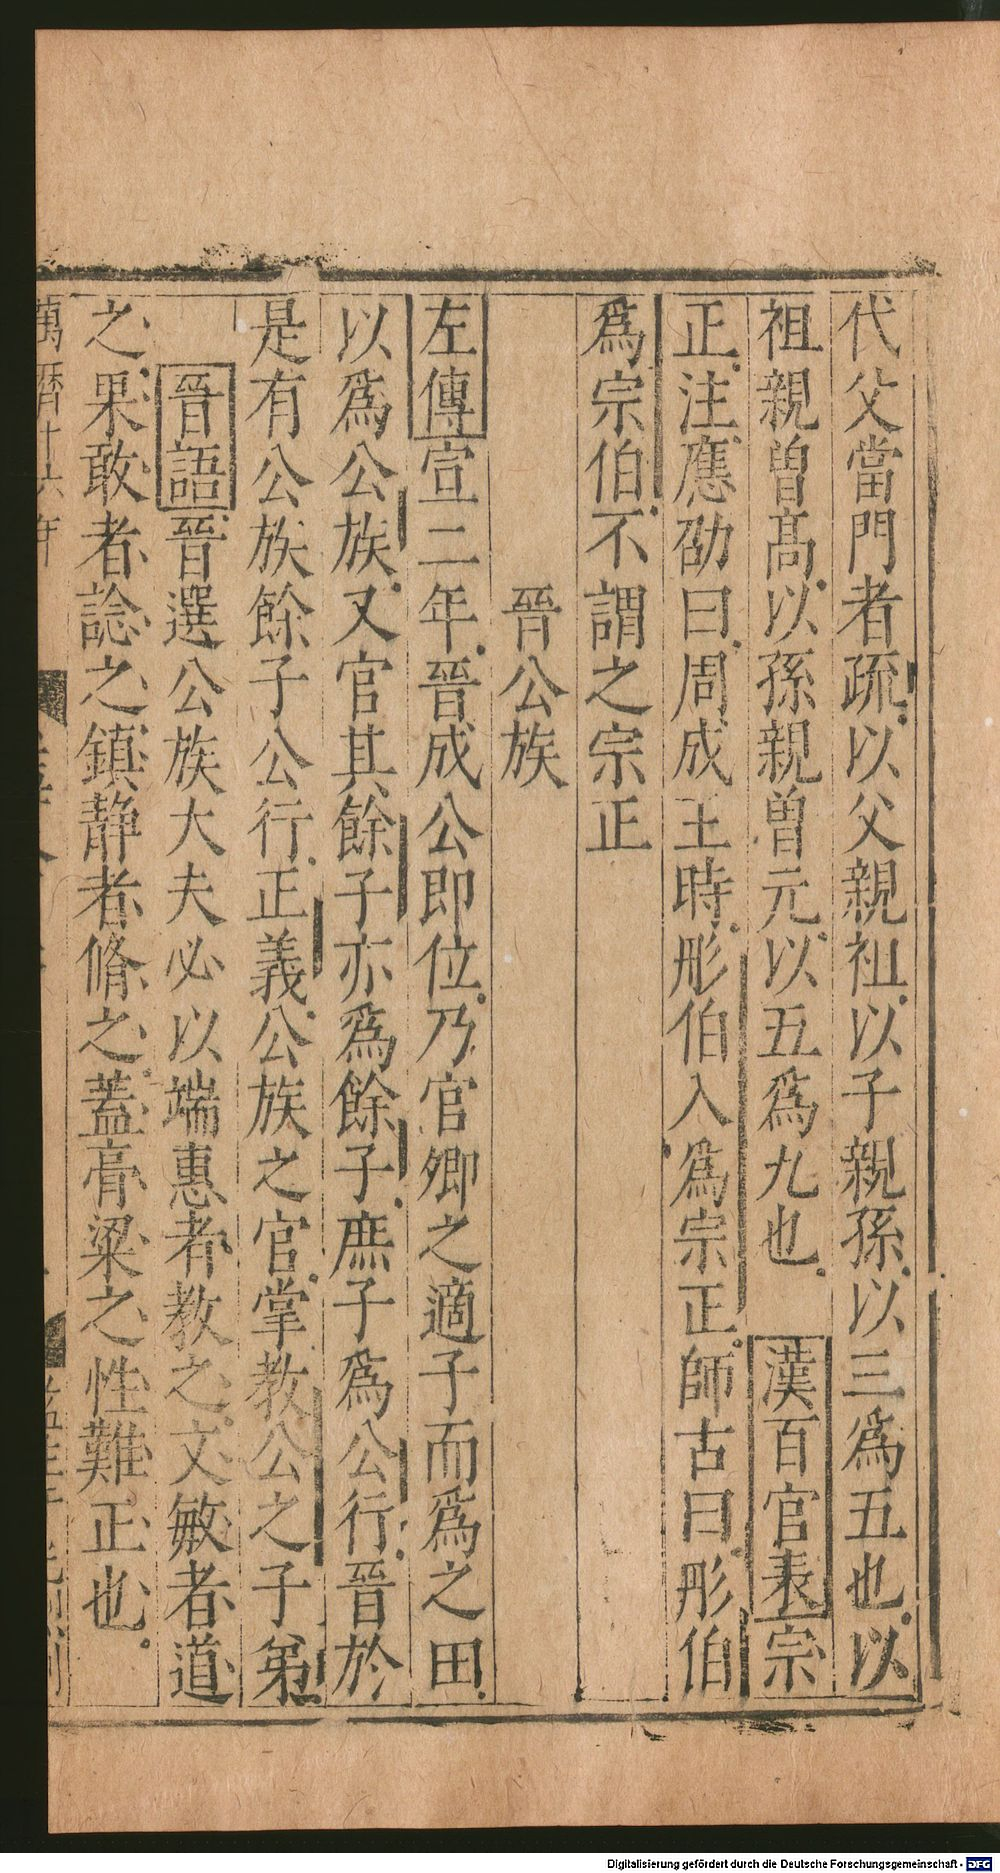 代父當門者疏以父親祖以子親孫以三爲五也以
祖親曽髙以孫親曽元以五爲九也 漢百官表宗
正注應劭曰周成王時彤伯入爲宗正師古曰彤伯
爲宗伯不謂之宗正
晉公族
左傳宣二年晉成公即位乃官卿之適子而爲之田
以爲公族又官其餘子亦爲餘子庶子爲公行晉於
是有公族餘子公行正義公族之官掌教公之子弟
晉語晉選公族大夫必以端惠者教之文敏者道
之果敢者諗之鎮静者脩之蓋膏粱之性難正也
萬曆十六年
Digitalisierung gefördert durch die Deutsche Forschungsgemeinschaft - DFG